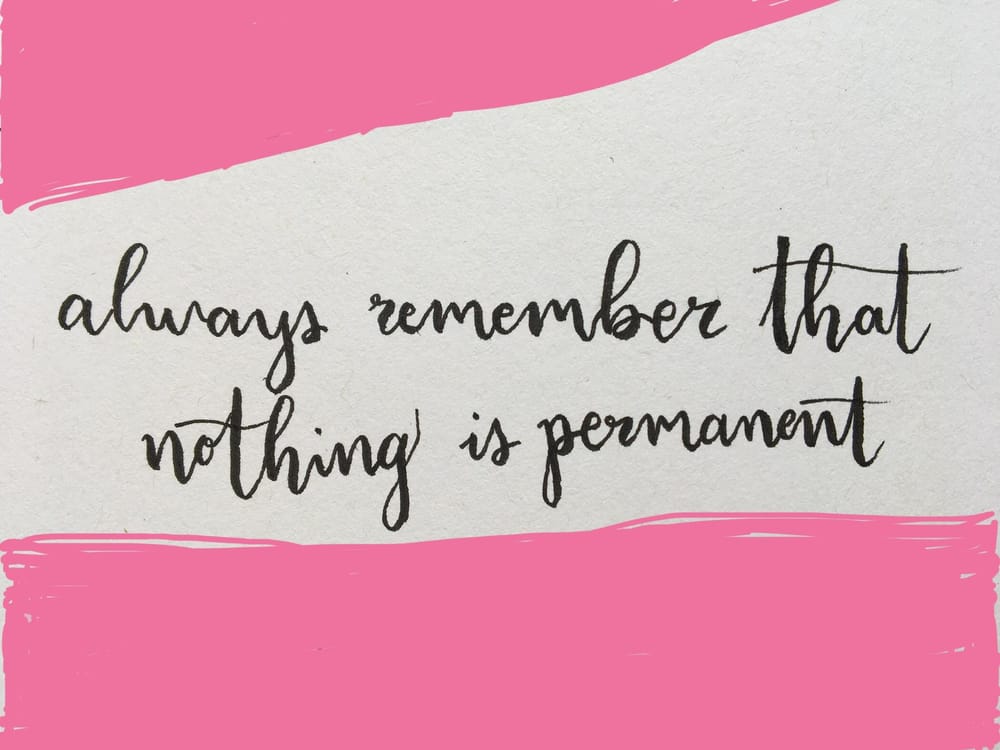 always remember that
nothing is permanent